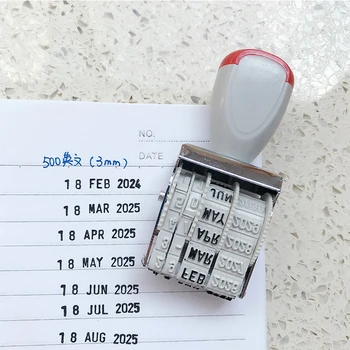 NO.
500英文(3mm)
DATE
18 FEB 2024
18 MAR 2025
18 APR 2025
18 MAY 2025
18 JUN 2025
18 JUL 2025
18 AUG 2025
JUN
MAY
APR
MAR
FEB